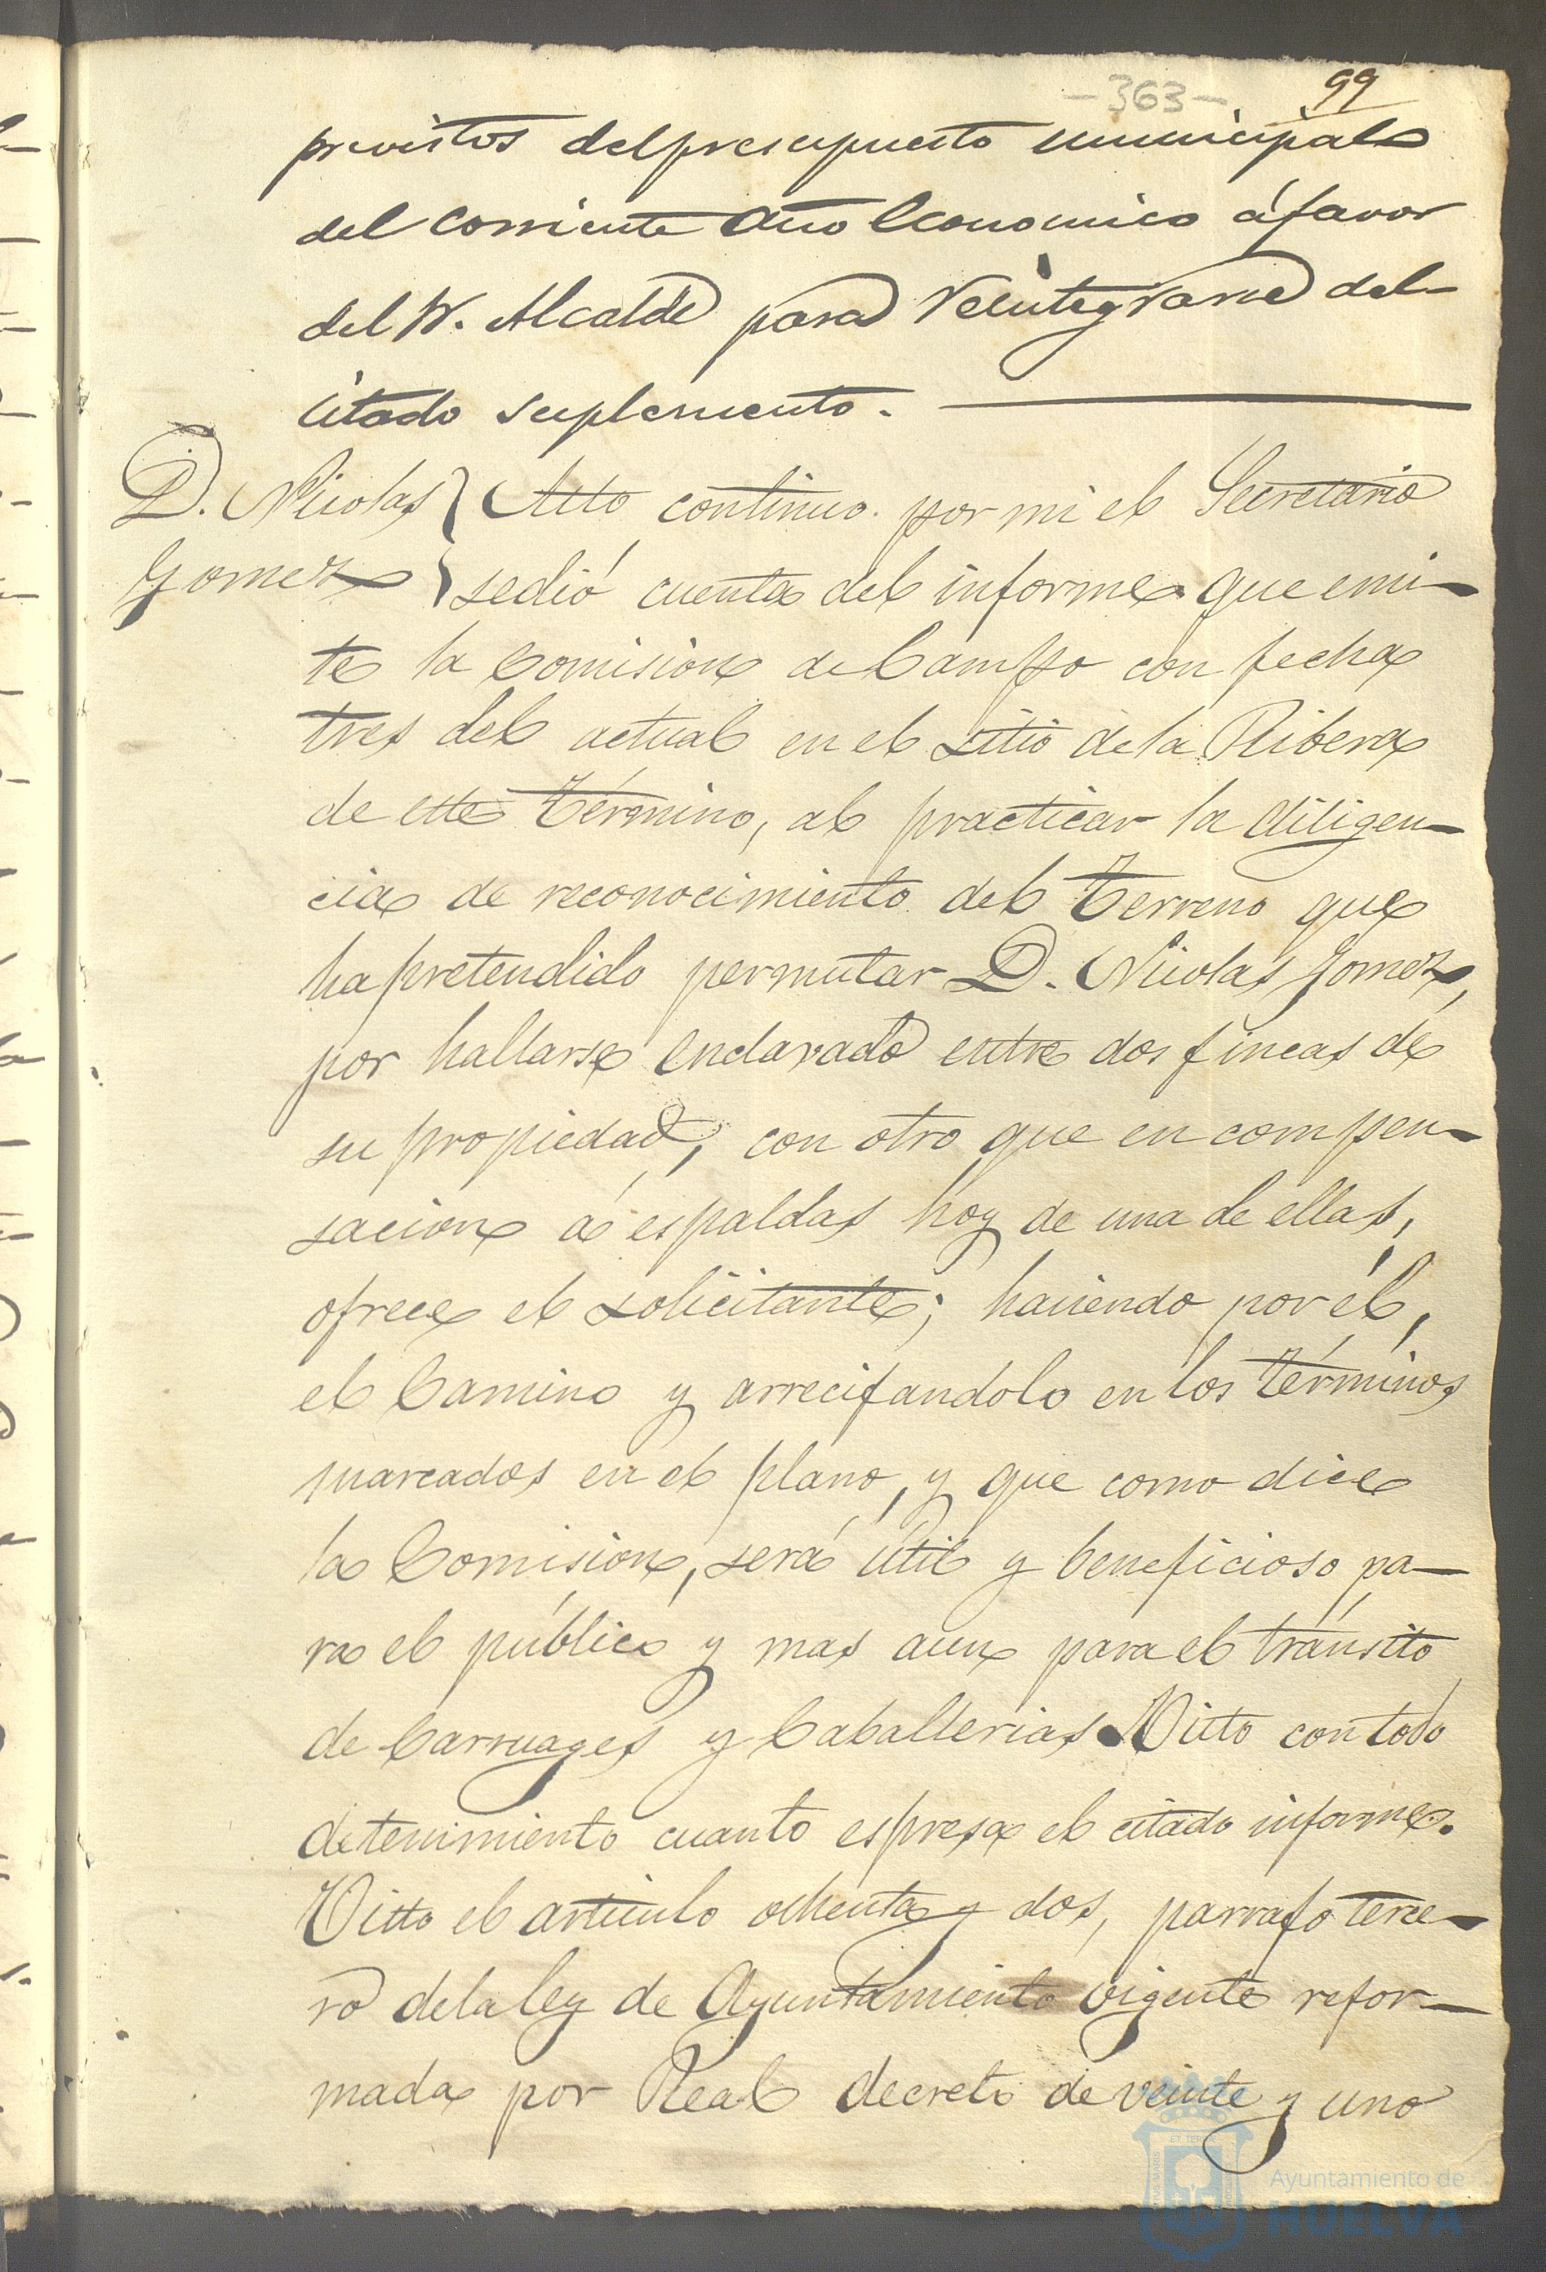 -363-
99
previstos del presupuesto municipal
del corriente año economico á favor
del Sr. Alcalde para reintegrarse del
citado suplemento.
D. Nicolas
Gomez
Acto continuo por mi el Secretario
se dió cuenta del informe que emi-
te la Comision de Campo con fecha
tres del actual en el sitio de la Ribera
de este término, al practicar la diligen-
cia de reconocimiento del terreno que
ha pretendido permutar D. Nicolas Gomez,
por hallarse enclavado entre dos fincas de
su propiedad, con otro que en compen-
sacion á espaldas hoy de una de ellas,
ofrece el solicitante; haciendo por él,
el Camino y arrecifandolo en los términos
marcados en el plano, y que como dice
la Comision, será útil y beneficioso pa-
ra el público y mas aun para el tránsito
de Carruages y Caballerias. Visto con todo
detenimiento cuanto espresa el citado informe.
Visto el articulo ochenta y dos, parrafo terce-
ro de la ley de Ayuntamiento vigente refor-
mada por Real decreto de veinte y uno
Ayuntamiento de
HUELVA